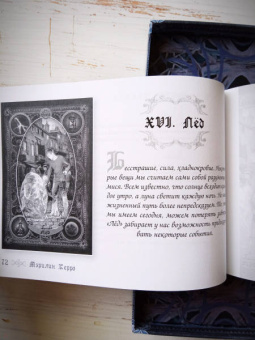 XVI. Лёд
Бесстрашие, сила, хладнокровие. Некото-
рые вещи мы считаем сами собой разумею-
мися. Всем известно, что солнце восходит
дое утро, а луна светит каждую ночь. Но
жизненный путь более непредсказуем.
мы имеем сегодня, можем потерять
«Лёд» забирает у нас возможность
вать некоторые события.
72
Марилин Керро